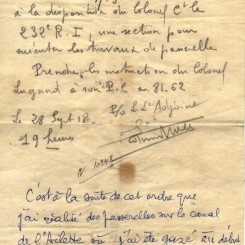 à la disposition du Colonel Ct le
232e R.I, une section pour
exécuter les travaux de passerelle
Prendre les instructions du Colonel
Lugand à son P.C en 81.62
Le 28 Sept 18. P/o Le Lt Adjoint
19 heures
N° 1094
C'est à la suite de cet ordre que
j'ai réalisé des passerelles sur le canal
de l'Ailette où j'ai été gazé au début